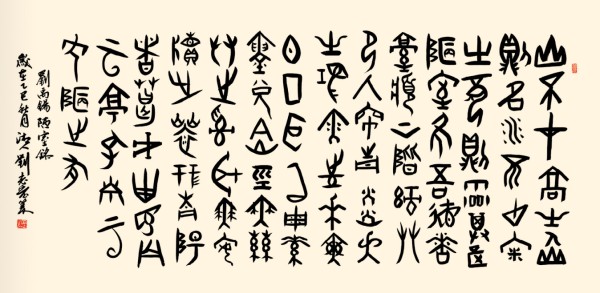 山不在高有仙
則名水不在深
有龍則靈斯是
陋室惟吾德馨
苔痕上階綠艸
色入帘青談
笑有鴻儒往來無
白丁可以調素
琴閱金經無絲
竹之亂耳無案
牘之勞形南陽
諸葛廬西蜀子
云亭孔子云
何陋之有
劉禹錫陋室銘
歲在乙巳秋月 劉